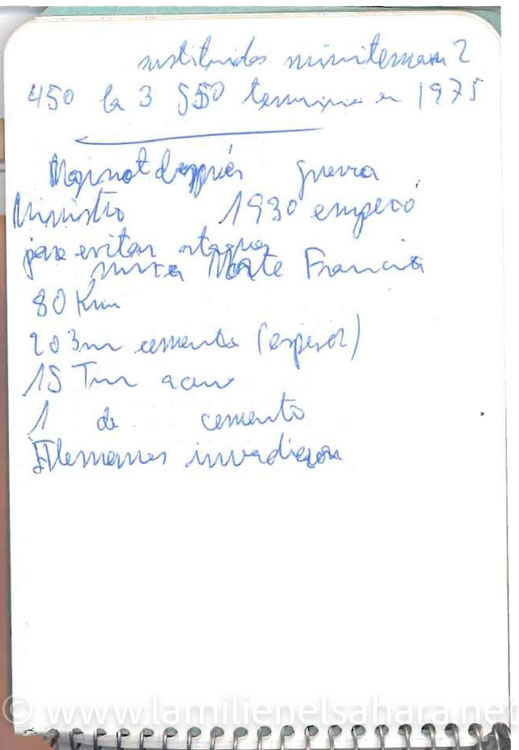 sustituidos minuteman 2
450 la 3 550 termina en 1975
Maginot después guerra
Ministro 1930 empezó
para evitar ataques
nunca Norte Francia
80 Km
2 o 3 m cemento (espesor)
15 Tm acero
1 de cemento
Alemanes invadieron
© www.lamilienelsahara.net